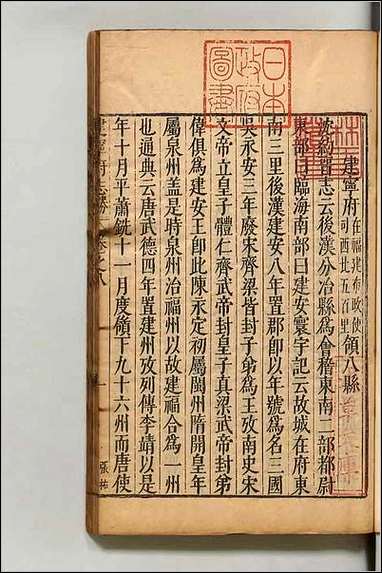 日本
政府
圖書
建寧府 在福建布政使司西北五百里 領八縣
沈約晉志云後漢分冶縣為會稽東南二部都尉
東部曰臨海南部曰建安寰宇記云故城在府東
南三里後漢建安八年置郡即以年號為名三國
吳永安三年廢宋齊梁皆封子弟為王攷南史宋
文帝立皇子體仁齊武帝封皇子真梁武帝封弟
偉俱為建安王即此陳永定初屬閩州隋開皇年
屬泉州蓋是時泉州治福州以故建福合為一州
也通典云唐武德四年置建州攷列傳李靖以是
年十月平蕭銑十一月度領下九十六州而唐使